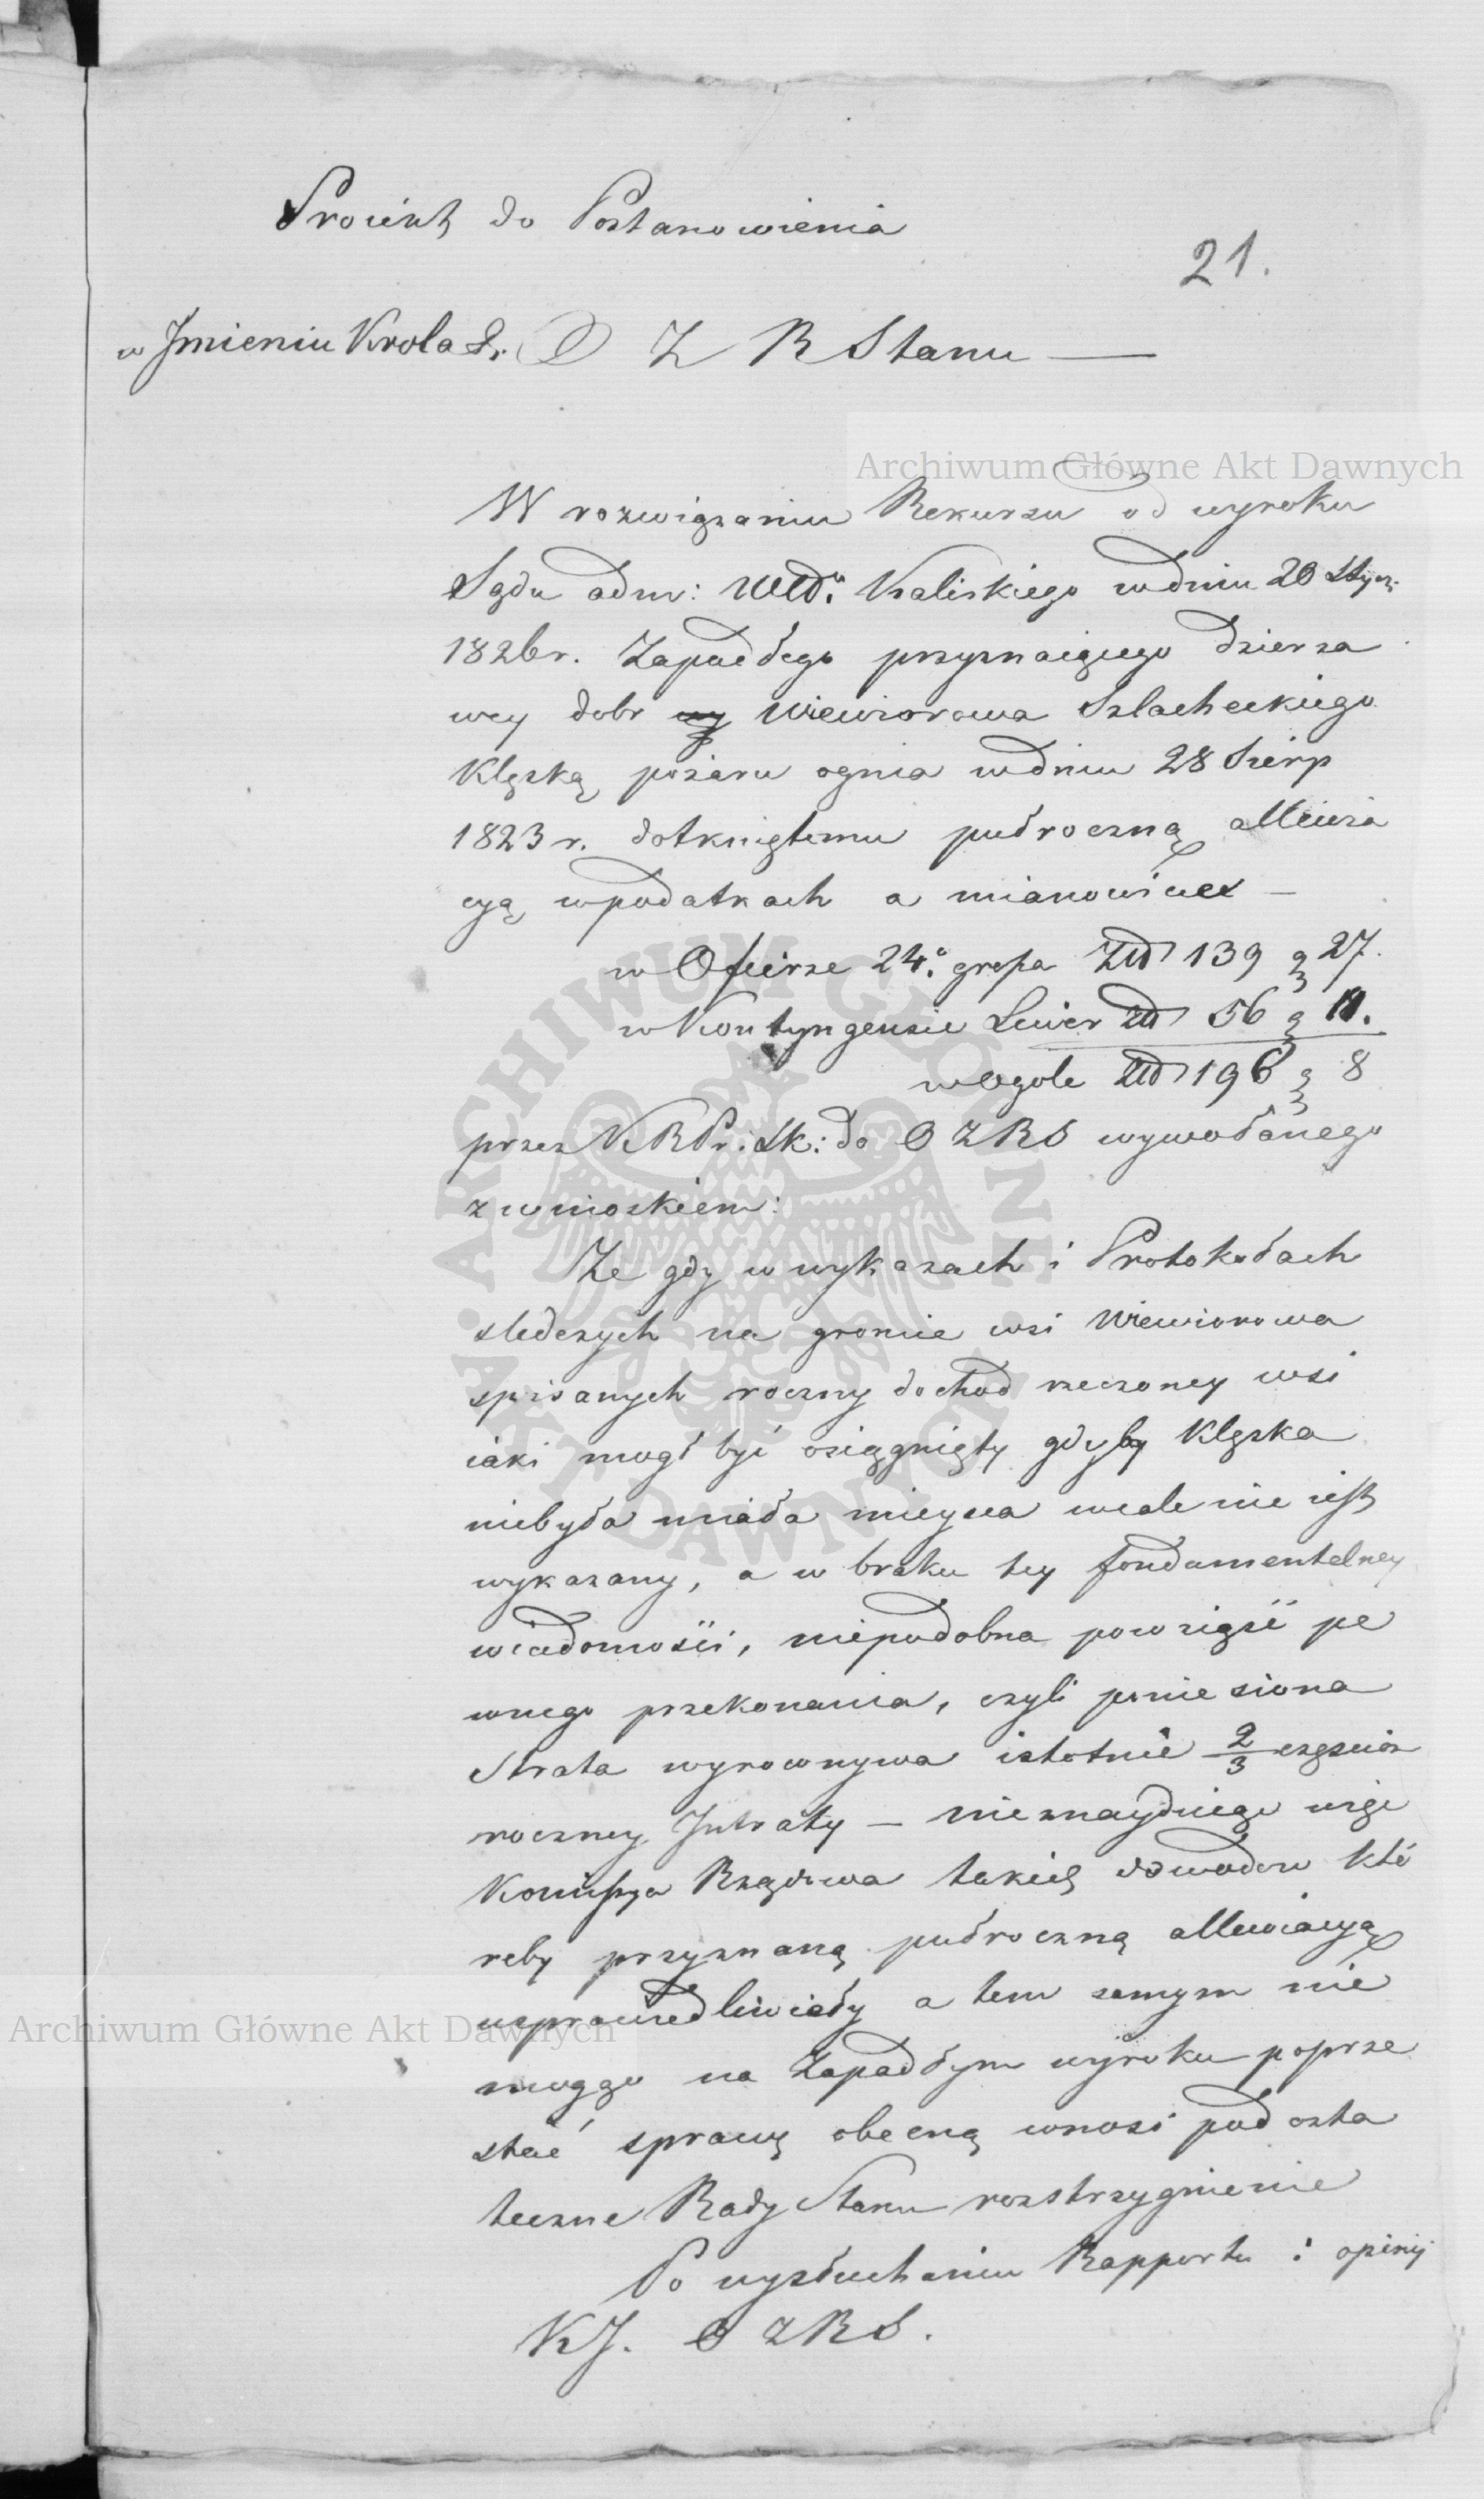 Proiekt do Postanowienia
21.
w Jmieniu Krola &. O Z R Stanu —
Archiwum Główne Akt Dawnych
W rozwiązaniu Rekursu od wyroku
Sądu adm: Wdd. Kaliskiego w dniu 20 Stycz:
1826 r. Zapadłego przyznaiącego dzierza
wcy dobr Wiewiorowa Szlacheckiego
Klęską pożaru ognia w dniu 28 Sierp
1823 r. dotkniętemu pułroczną allewia
cyą w podatkach a mianowicie —
w Ofierze 24. grosza Złł 139 g 27.
w Kontyngensie Liwer złł 56 g 11.
w ogole Złł 196 g 8
przez K R Pr. Sk: do O Z R S wywołanego
z wnioskiem:
Ze gdy w wykazach i Protokułach
sledczych na gruncie wsi Wiewiorowa
spisanych roczny dochod rzeczoney wsi
iaki mogł być osiągnięty gdyby Klęska
niebyła miała mieysca wcale nie iest
wykazany, a w braku tey fondamentelney
wiadomości, niepodobna powziąść pe
wnego przekonania, czyli poniesiona
Strata wyrownywa istotnie 2/3 częściom
roczney Jntraty — nieznayduiąc więc
Komissya Rządowa takich dowodow któ
reby przyznaną pułroczną allewiacyą
usprawiedliwiały a tem samym nie
mogąc na Zapadłym wyroku poprze
stać sprawę obecną wnosi pod osta
teczne Rady Stanu rozstrzygnienie
Archiwum Główne Akt Dawnych
Po wysłuchaniu Rapportu i opinij
K J. O Z R S.
ARCHIWUM GŁÓWNE AKT DAWNYCH